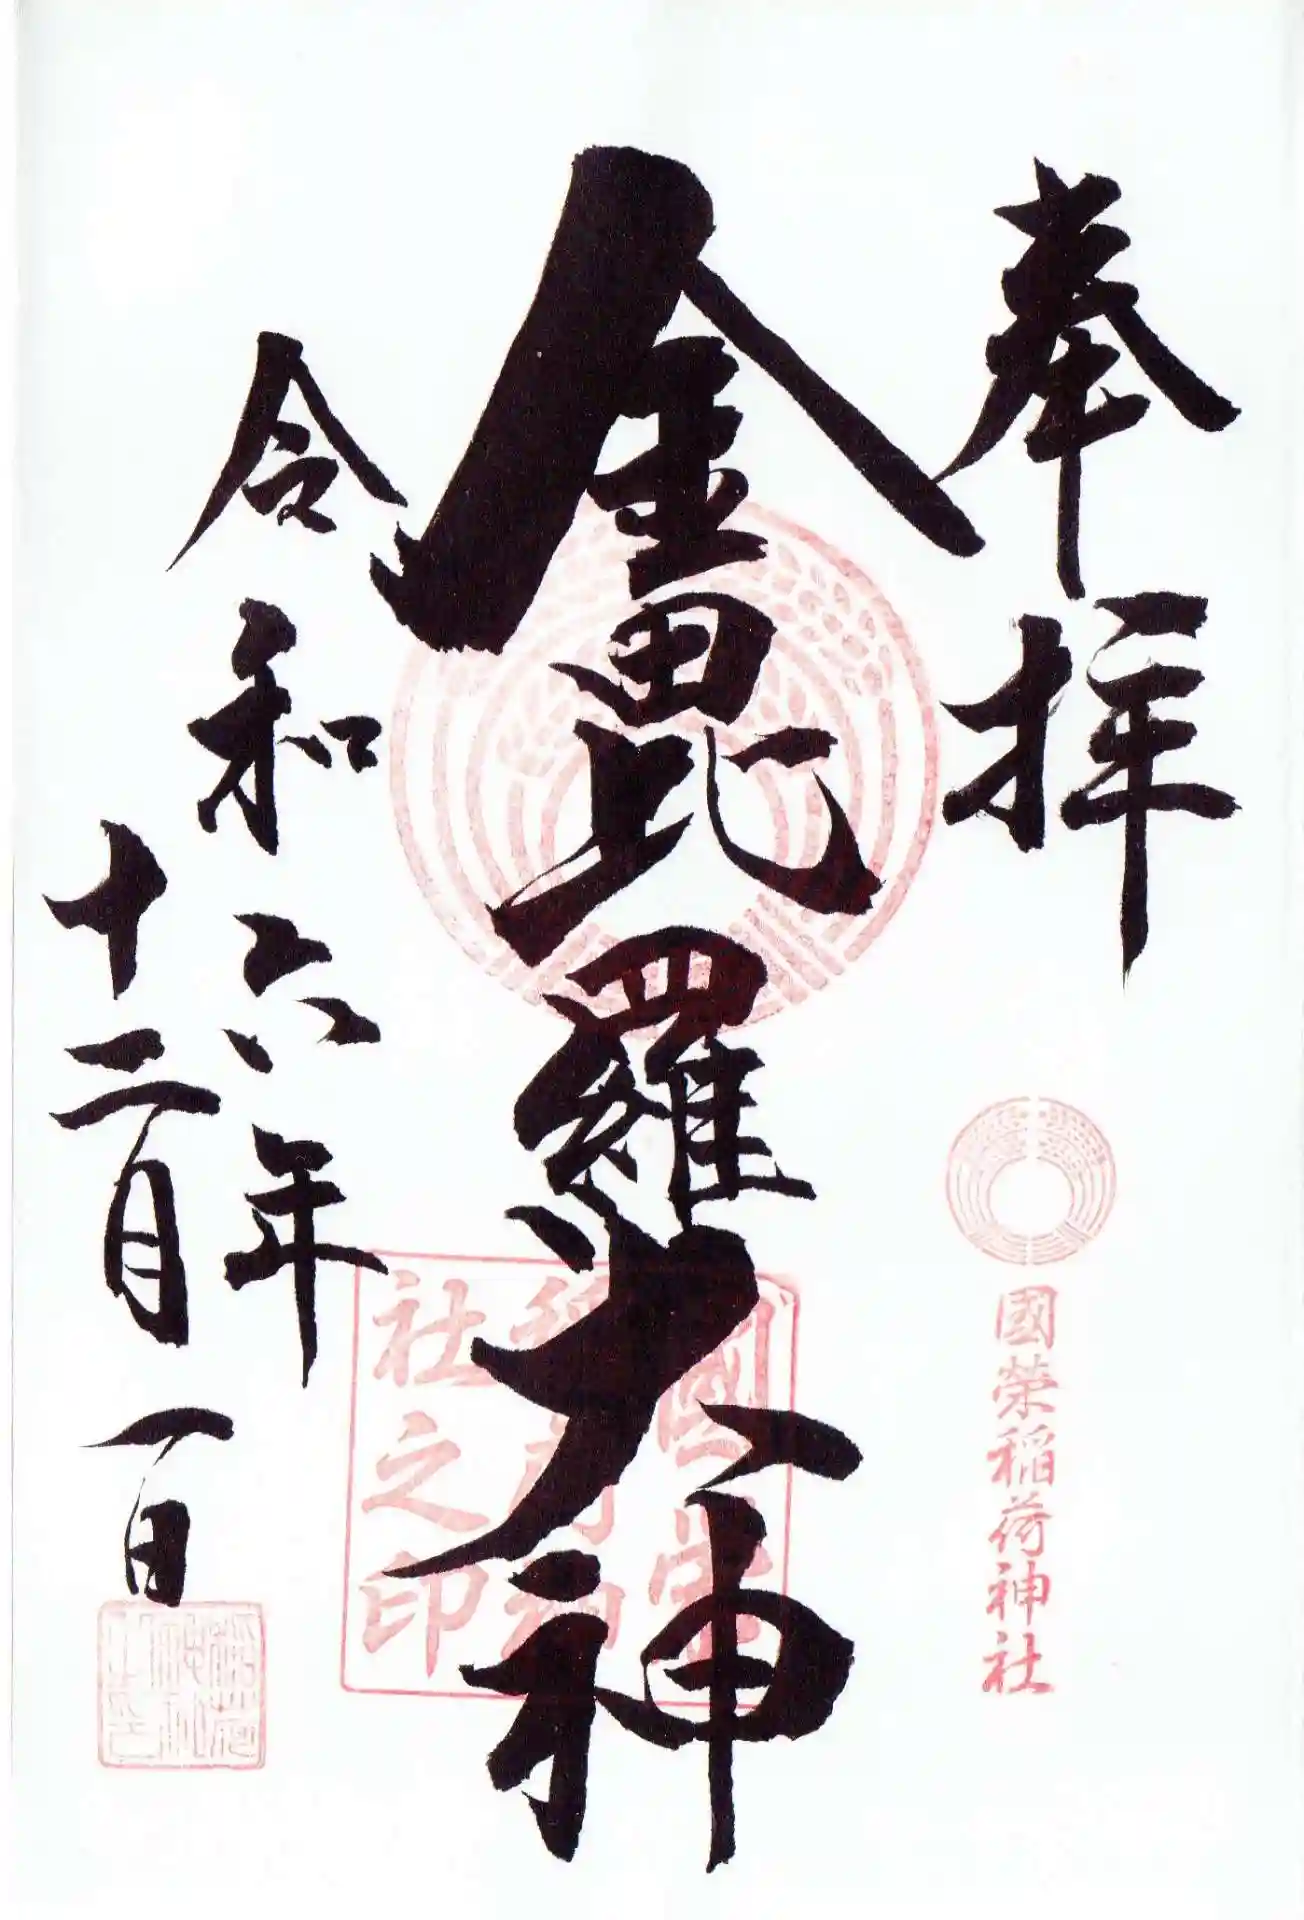 奉拝
國榮稲荷神社
金毘羅大神
國榮
稲荷神
社之印
令和六年
十二月一日